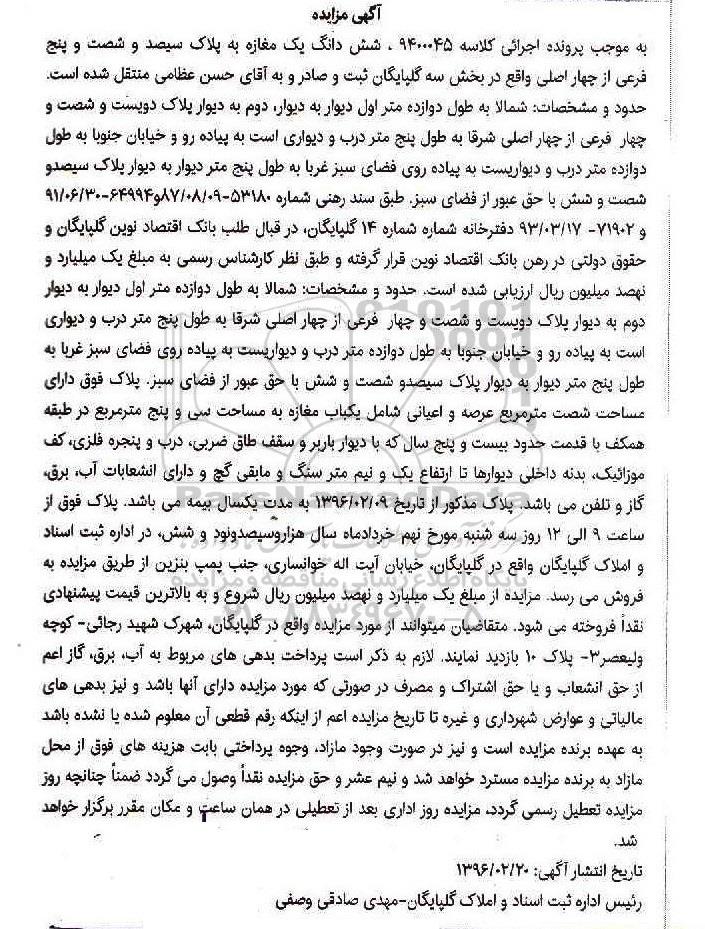 آگهی مزایده
به موجب پرونده اجرائی کلاسه ۹۴۰۰۰۴۵ ، شش دانگ یک مغازه به پلاک سیصد و شصت و پنج
فرعی از چهار اصلی واقع در بخش سه گلپایگان ثبت و صادر و به آقای حسن عظامی منتقل شده است.
حدود و مشخصات: شمالا به طول دوازده متر اول دیوار به دیوار، دوم به دیوار پلاک دویست و شصت و
چهار فرعی از چهار اصلی شرقا به طول پنج متر درب و دیواری است به پیاده رو و خیابان جنوبا به طول
دوازده متر درب و دیواریست به پیاده روی فضای سبز غربا به طول پنج متر دیوار به دیوار پلاک سیصدو
شصت و شش با حق عبور از فضای سبز. طبق سند رهنی شماره ۵۳۱۸۰-۸۷/۰۸/۰۹و۶۴۹۹۴-۹۱/۰۶/۳۰
و ۷۱۹۰۲- ۹۳/۰۳/۱۷ دفترخانه شماره شماره ۱۴ گلپایگان، در قبال طلب بانک اقتصاد نوین گلپایگان و
حقوق دولتی در رهن بانک اقتصاد نوین قرار گرفته و طبق نظر کارشناس رسمی به مبلغ یک میلیارد و
نهصد میلیون ریال ارزیابی شده است. حدود و مشخصات: شمالا به طول دوازده متر اول دیوار به دیوار
دوم به دیوار پلاک دویست و شصت و چهار فرعی از چهار اصلی شرقا به طول پنج متر درب و دیواری
است به پیاده رو و خیابان جنوبا به طول دوازده متر درب و دیواریست به پیاده روی فضای سبز غربا به
طول پنج متر دیوار به دیوار پلاک سیصدو شصت و شش با حق عبور از فضای سبز. پلاک فوق دارای
مساحت شصت مترمربع عرصه و اعیانی شامل یکباب مغازه به مساحت سی و پنج مترمربع در طبقه
همکف با قدمت حدود بیست و پنج سال که با دیوار باربر و سقف طاق ضربی، درب و پنجره فلزی، کف
موزائیک، بدنه داخلی دیوارها تا ارتفاع یک و نیم متر سنگ و مابقی گچ و دارای انشعابات آب، برق،
گاز و تلفن می باشد. پلاک مذکور از تاریخ ۱۳۹۶/۰۲/۰۹ به مدت یکسال بیمه می باشد. پلاک فوق از
ساعت ۹ الی ۱۲ روز سه شنبه مورخ نهم خردادماه سال هزاروسیصدونود و شش، در اداره ثبت اسناد
و املاک گلپایگان واقع در گلپایگان، خیابان آیت اله خوانساری، جنب پمپ بنزین از طریق مزایده به
فروش می رسد. مزایده از مبلغ یک میلیارد و نهصد میلیون ریال شروع و به بالاترین قیمت پیشنهادی
نقداً فروخته می شود. متقاضیان میتوانند از مورد مزایده واقع در گلپایگان، شهرک شهید رجائی- کوچه
ولیعصر۳- پلاک ۱۰ بازدید نمایند. لازم به ذکر است پرداخت بدهی های مربوط به آب، برق، گاز اعم
از حق انشعاب و یا حق اشتراک و مصرف در صورتی که مورد مزایده دارای آنها باشد و نیز بدهی های
مالیاتی و عوارض شهرداری و غیره تا تاریخ مزایده اعم از اینکه رقم قطعی آن معلوم شده یا نشده باشد
به عهده برنده مزایده است و نیز در صورت وجود مازاد، وجوه پرداختی بابت هزینه های فوق از محل
مازاد به برنده مزایده مسترد خواهد شد و نیم عشر و حق مزایده نقداً وصول می گردد ضمناً چنانچه روز
مزایده تعطیل رسمی گردد، مزایده روز اداری بعد از تعطیلی در همان ساعت و مکان مقرر برگزار خواهد
شد.
تاریخ انتشار آگهی: ۱۳۹۶/۰۲/۲۰
رئیس اداره ثبت اسناد و املاک گلپایگان-مهدی صادقی وصفی